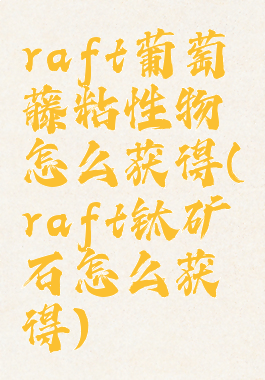 raft葡萄
藤粘性物
怎么获得(
raft钛矿
石怎么获
得)